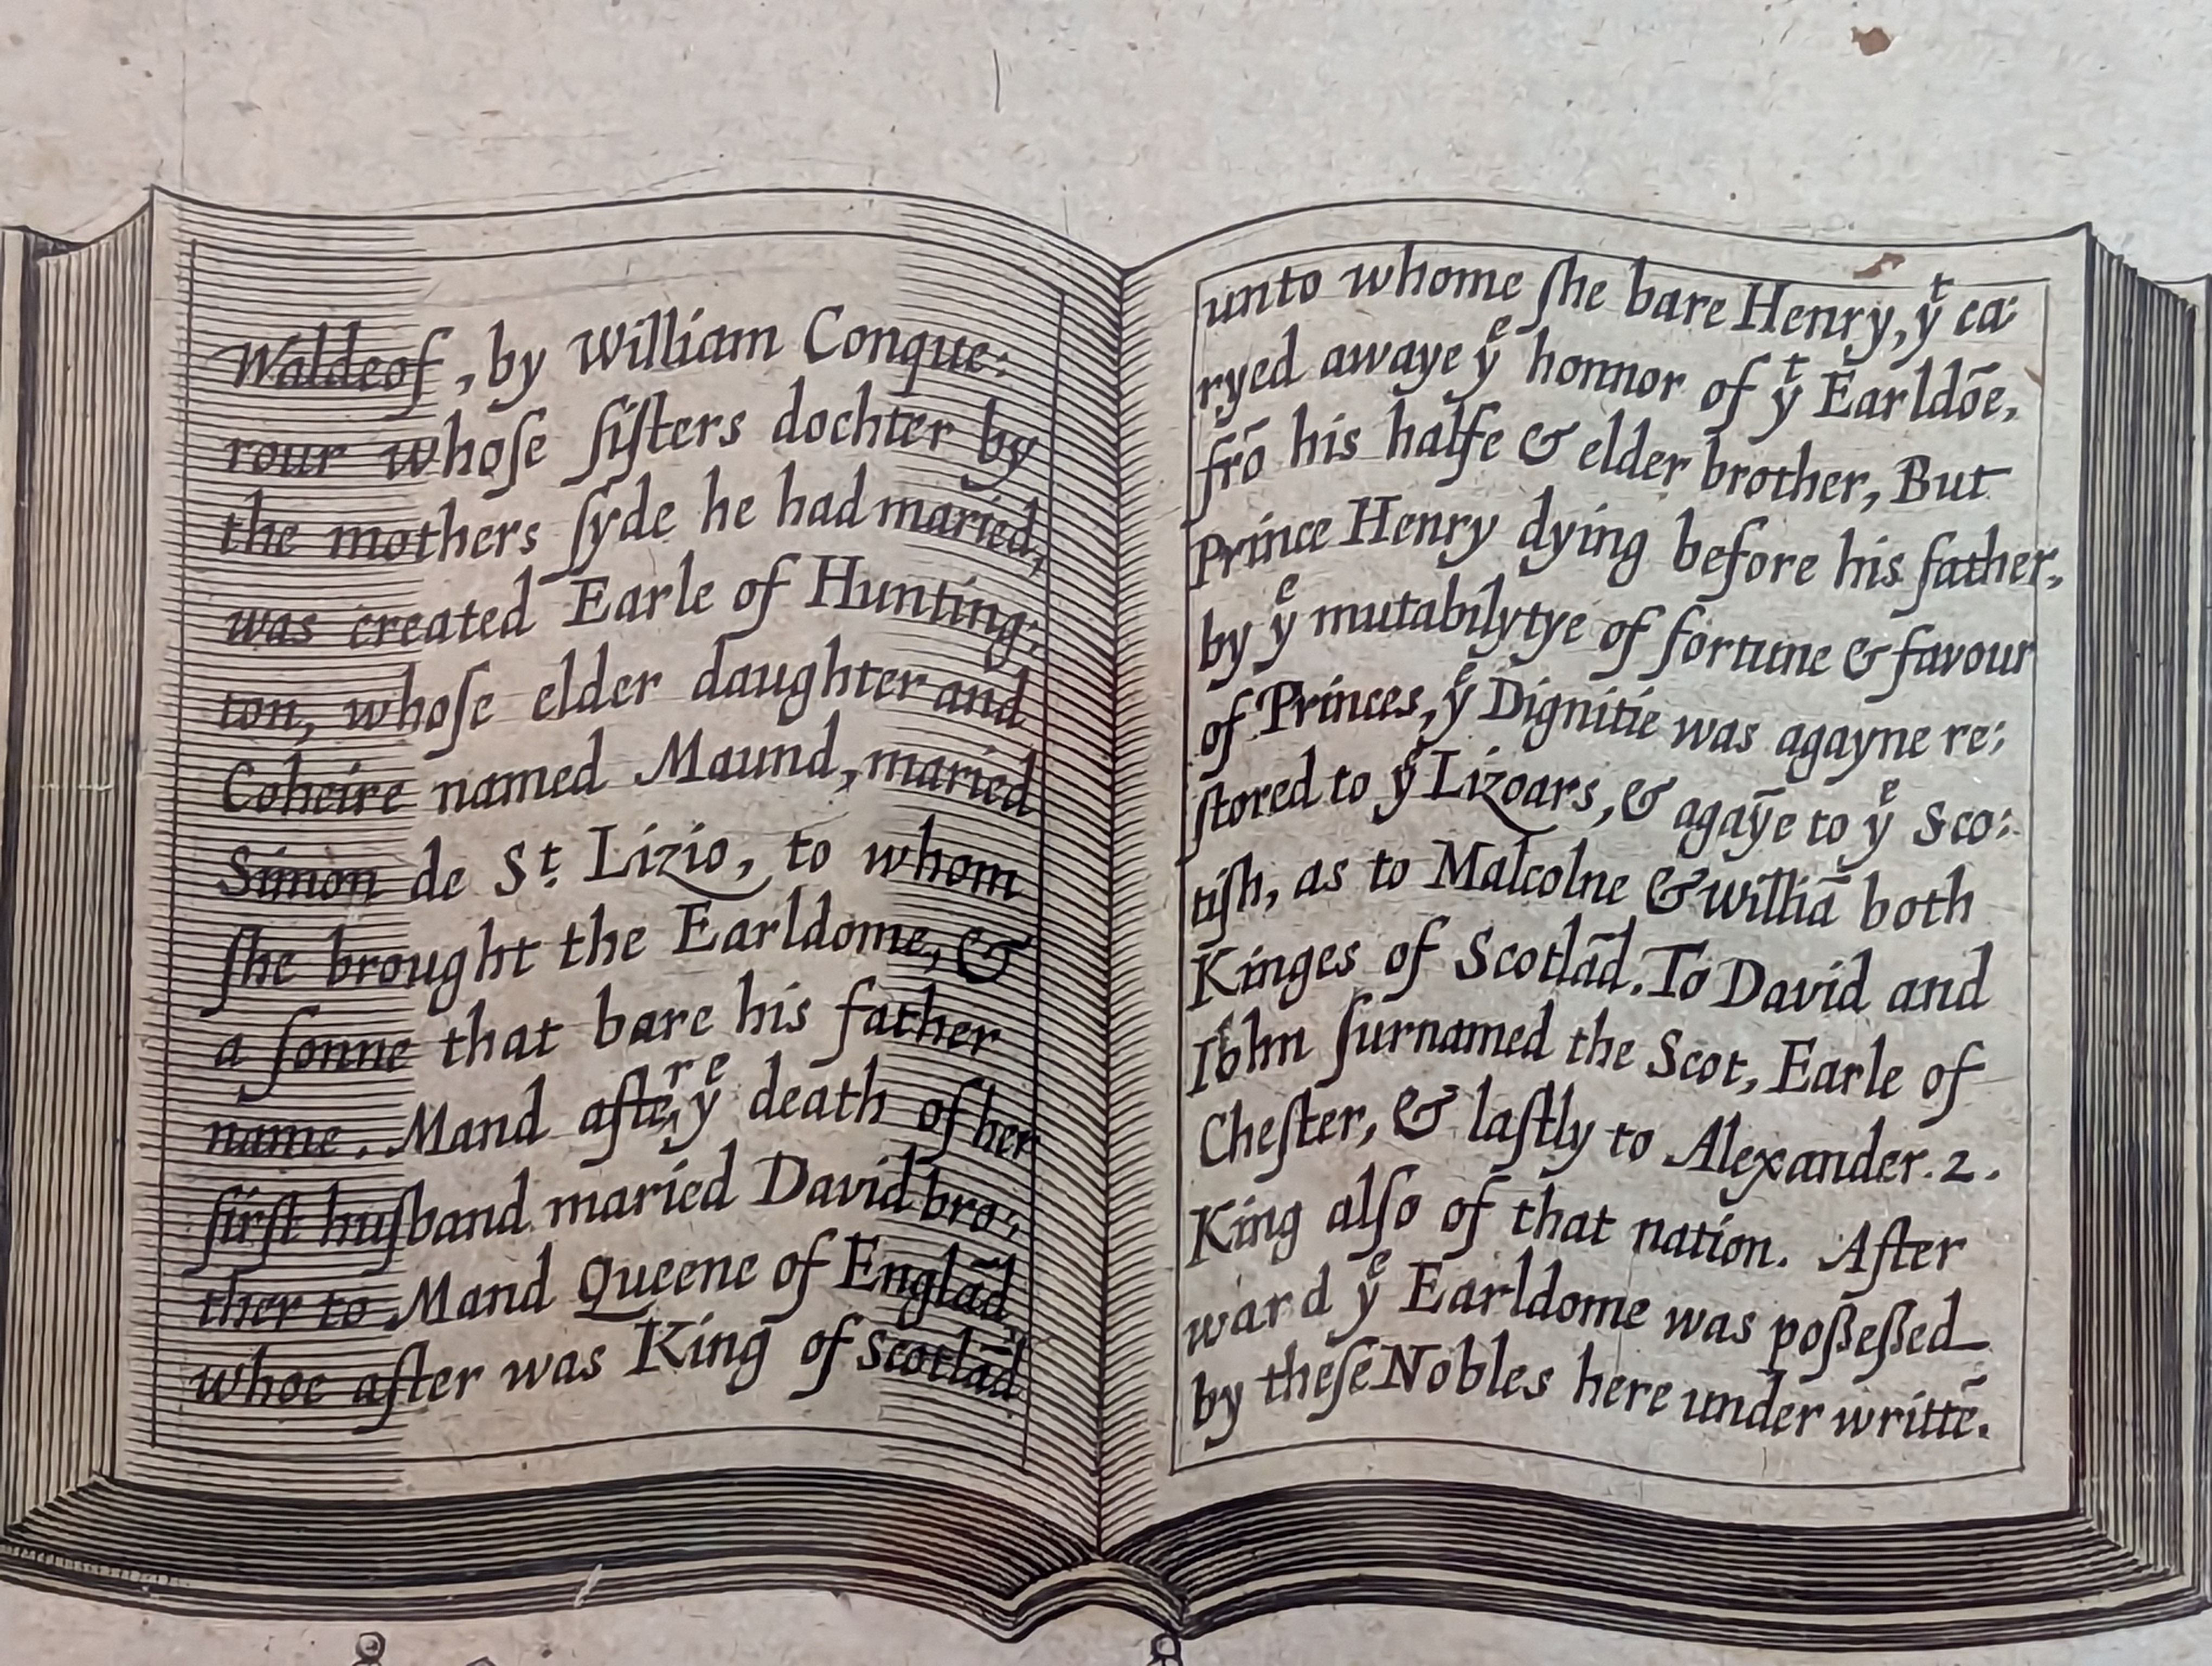 Waldeof, by William Conque:
rour whoſe ſiſters dochter by
the mothers ſyde he had maried,
was created Earle of Hunting:
ton, whoſe elder daughter and
Coheire named Maund, maried
Simon de St. Lizio, to whom
ſhe brought the Earldome, &
a ſonne that bare his father
name. Mand afteʳ, yᵉ death of her
firſt huſband maried David bro:
ther to Mand Queene of Englād
whoe after was King of Scotlād
unto whome ſhe bare Henry, yᵗ ca:
ryed awaye yᵉ honnor of yᵗ Earldōe,
frō his halfe & elder brother, But
Prince Henry dying before his father,
by yᵉ mutabilytye of fortune & favour
of Princes, yᵉ Dignitie was agayne re:
ſtored to yᵉ Lizoars, & agaȳe to yᵉ Sco:
tiſh, as to Malcolne & williā both
Kinges of Scotlād. To David and
Iohn ſurnamed the Scot, Earle of
Cheſter, & laſtly to Alexander. 2.
King alſo of that nation. After
ward yᵉ Earldome was poßeßed
by theſe Nobles here under writtē.